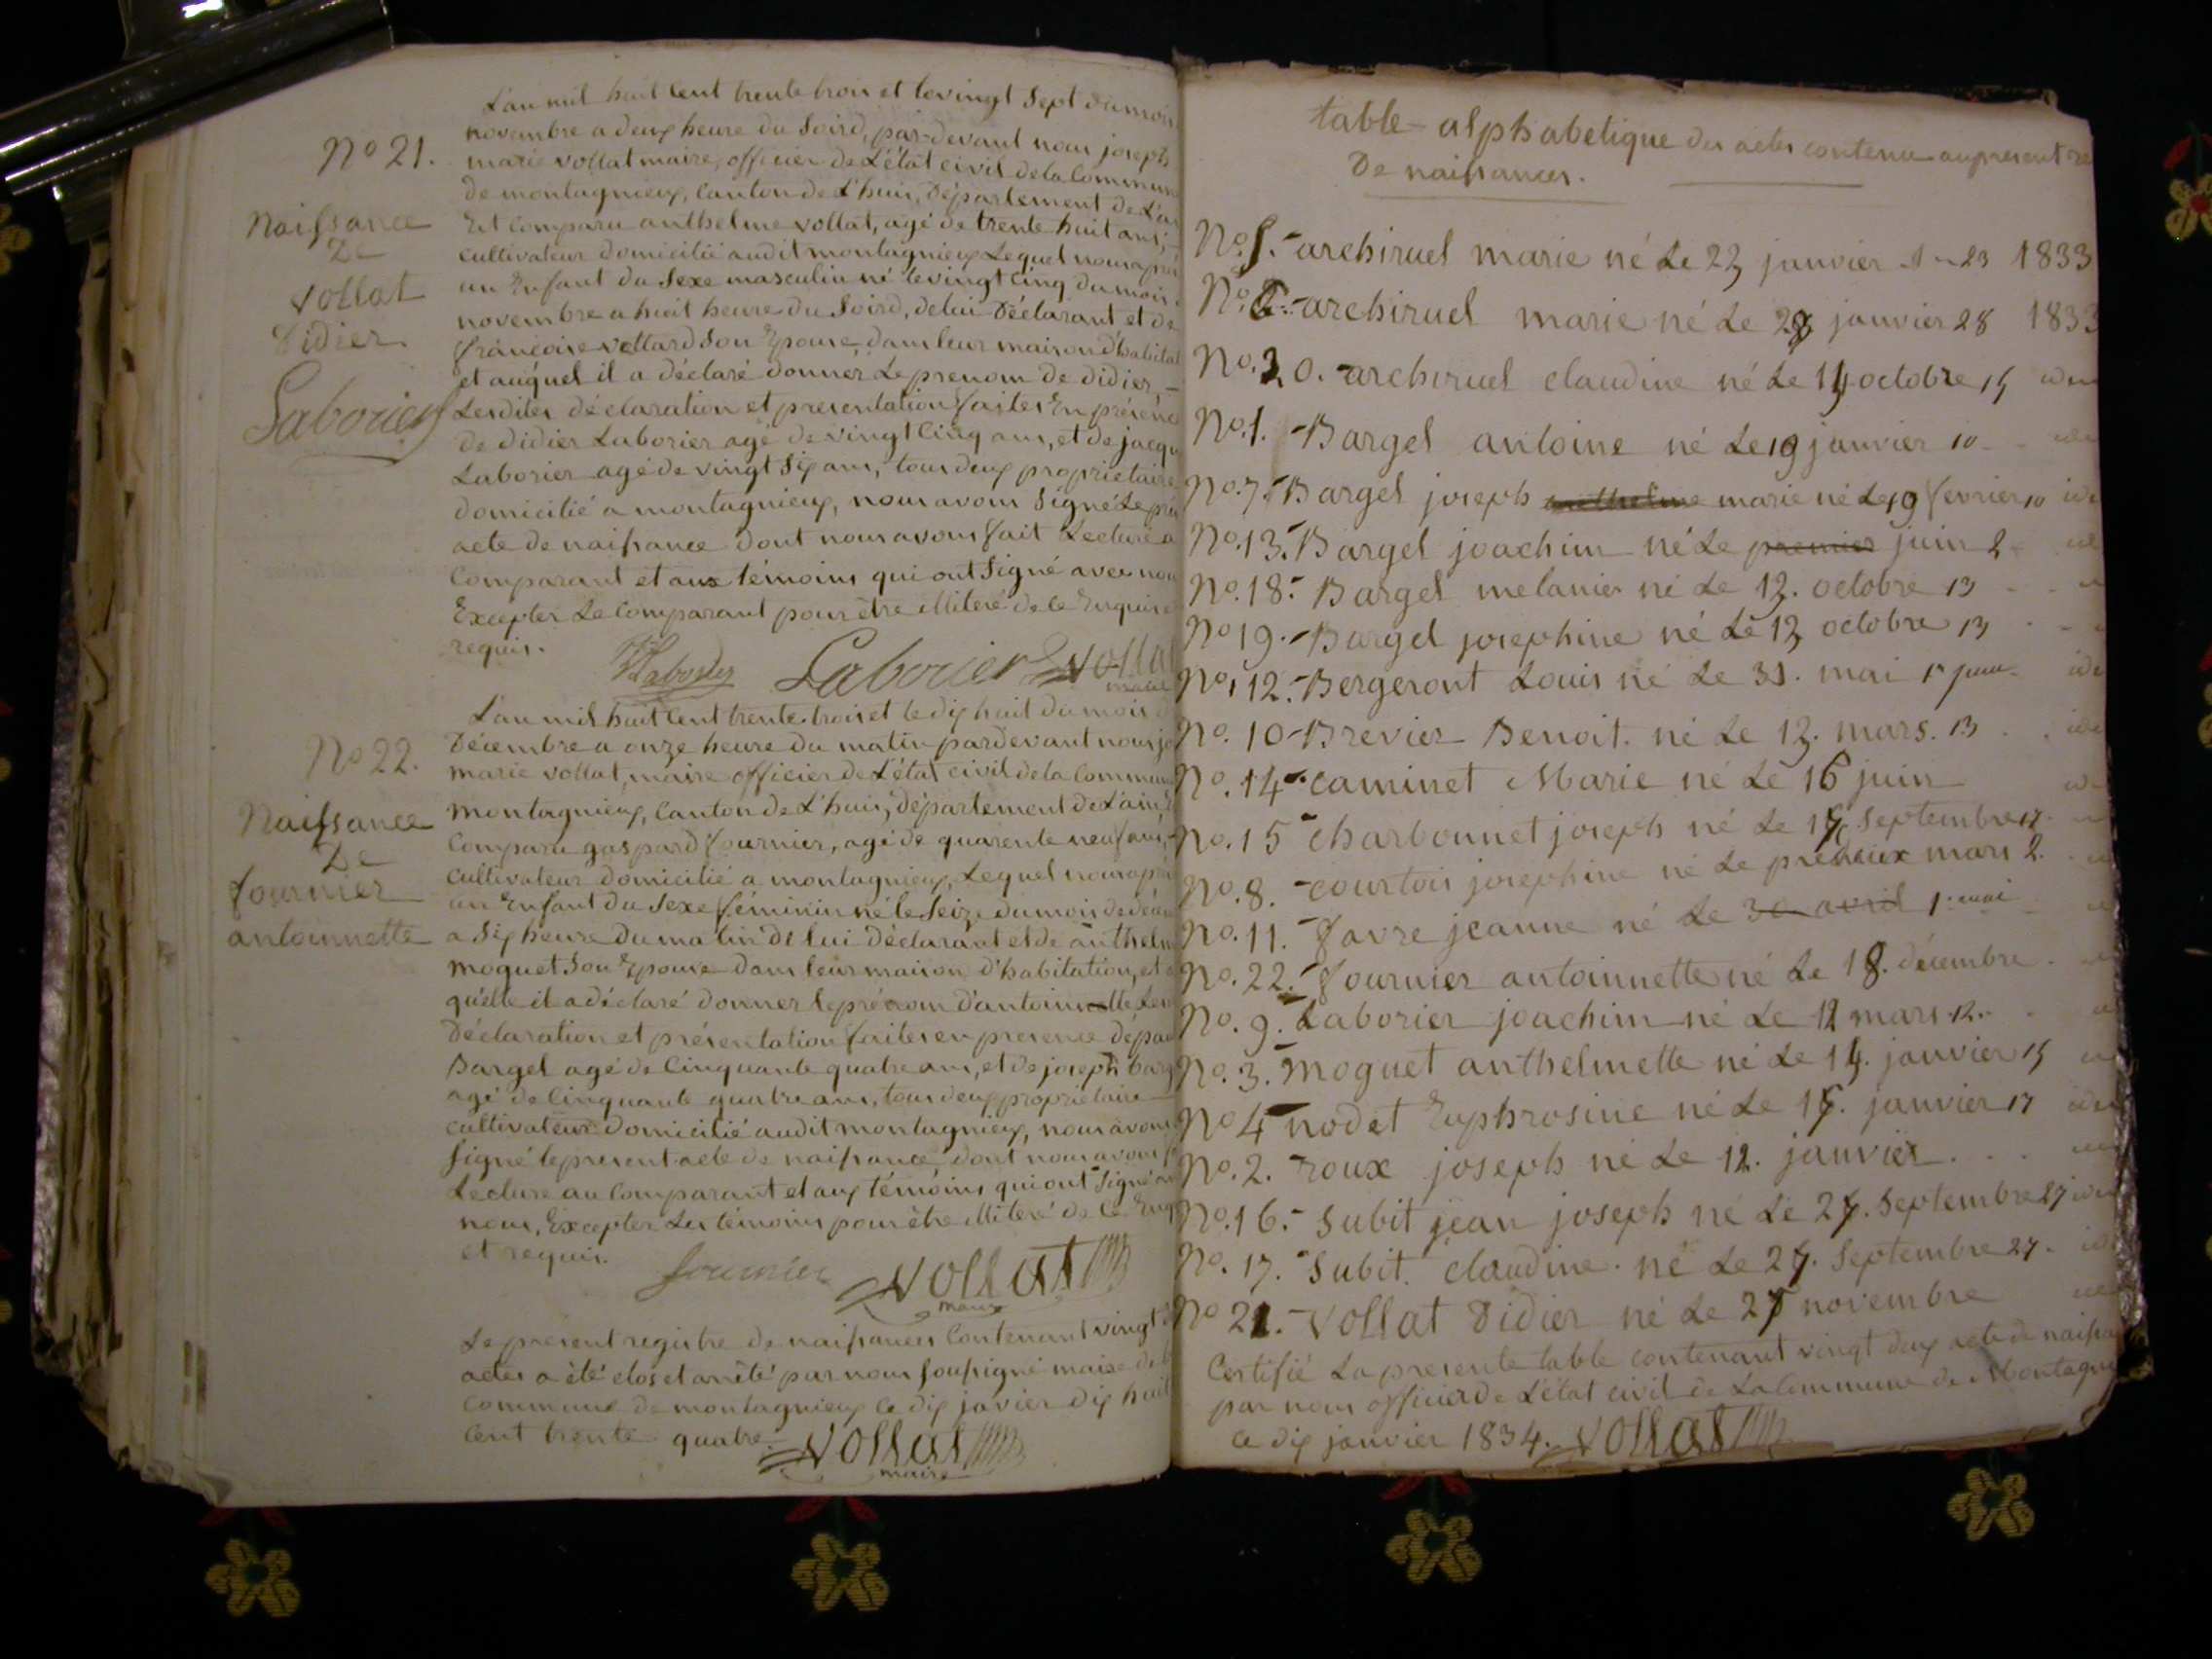 L'an mil huit cent trente trois et le vingt sept du mois
No 21.
novembre a deux heure du soird, par-devant nous joseph
marie vollat maire, officier de L'état civil de la Commune
de montagnieux, Canton de L'huis, Département de L'ain
Naissance
De
vollat
Didier
Est Comparu anthelme vollat, agé de trente huit ans,
cultivateur domicilié audit montagnieux Lequel nous a pré
un Enfant du Sexe masculin né le vingt Cinq du mois
novembre a huit heure du Soird, de lui Déclarant et de
françoise vettard Son Epouse, dans leur maison d'habitat
et auquel il a Déclaré donner Le prenom de Didier –
Laborier
Lesdites déclaration et presentation faites En présence
de Didier Laborier agé de vingt Cinq ans, et de jacqu
Laborier agé de vingt Six ans, tous deux proprietaire
domicilié a montagnieux, nous avons Signé Le pré
acte de naissance dont nous avons fait Lecture a
Comparant et aux témoins qui ont Signé avec nou
Excepter Le Comparant pour être illiteré de ce Enquis e
requis.
Laborier Laborier vollat
maire
L'an mil huit Cent trente trois et le dix huit du mois d
No 22.
Décembre a onze heure du matin pardevant nous jo
marie vollat, maire officier de L'état civil de la Commune
montagnieux, Canton de L'huis, département de L'ain, E
Naissance
De
fournier
antoinnette
Comparu gaspard fournier, agé de quarente neuf ans,
cultivateur Domicilié a montagnieux, Lequel nous a pré
un Enfant du Sexe féminin né le Seize du mois de déc
a Six heure du matin de lui Déclarant et de anthelm
moguet Son Epouse dans leur maison d'habitation, et a
quelle il a déclaré donner le prénom d'antoinnette Les
Déclaration et présentation faites en presence de pa
Bargel agé de Cinquante quatre ans, et de joseph barg
agé de Cinquante quatre ans, tous deux proprietaire
cultivateur Domicilié audit montagnieux, nous avons
Signé le present acte de naissance, dont nous avons f
Lecture au Comparant et aux témoins qui ont Signé av
nous, Excepter Les témoins pour être illiteré de Ce Enq
et requis.
fournier vollat
maire
Le présent registre de naissances Contenant vingt
actes a été clos et arrêté par nous Soussigné maire de l
Commune de montagnieux Ce dix javier dix huit
Cent trente quatre. vollat
maire
table-alphabetique des actes contenu au present re
De naissances.
No. 5. archiruel marie né Le 23 janvier 23 1833
No. 6. archiruel marie né Le 28 janvier 28 1833
No. 20. archiruel claudine né Le 15 octobre 15 idem
No. 1. Bargel antoine né Le 10 janvier 10 ide
No. 7. Bargel joseph anthelme marie né Le 10 fevrier 10 ide
No. 13. Bargel joachim né Le premier juin 2
No. 18. Bargel melanie né Le 13. octobre 13
No 19. Bargel josephine né Le 13 octobre 13
No. 12. Bergeront Louis né Le 31. mai 1r juin ide
No. 10 Brevier Benoit. né Le 13. mars. 13 ide
No. 14 caminet Marie né Le 16 juin
No. 15 charbonnet joseph né Le 17 Septembre 17
No. 8. courtois josephine né Le premier mars 2.
No. 11. favre jeanne né Le 30 avril 1r mai
No. 22. fournier antoinnette né Le 18. décembre
No. 9. Laborier joachim né Le 12 mars 12
No. 3. Moguet anthelmette né Le 15. janvier 15
No 4 nodet Euphrosine né Le 17. janvier 17 ide
No. 2. roux joseph né Le 12. janvier
No. 16. Subit jean joseph né Le 27. Septembre 27 idem
No. 17. Subit. claudine. né Le 27. Septembre 27. ide
No 21. Vollat Didier né Le 27 novembre
Certifié La presente table contenant vingt deux acte de naissa
par nous officier de L'état civil de La Commune de Montagni
Ce dix janvier 1834. vollat